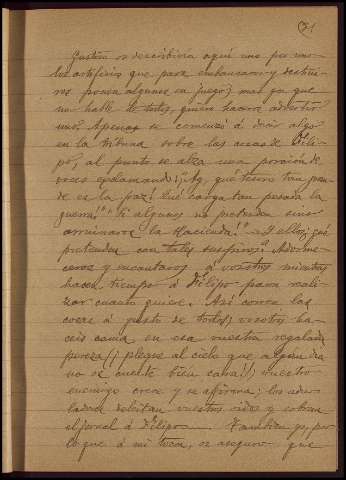 31
Gustoso os describiría aquí uno por uno
los artificios que para embaucaros y destrui-
ros ponen algunos en juego; mas ya que
no hable de todos, quiero haceros advertir
uno. Apenas se comenzó á decir algo
en la tribuna sobre las cosas de Filí-
po, al punto se alza una porción de
voces exclamando: ¡Ay, qué tesoro tan
de es la paz! ¡Qué carga tan pesada la
guerra! " Si algunos no pretenden sino
arruinaros la Hacienda!" Y ellos ¿qué
pretenden con tales suspiros? Adorme-
ceros y encantaros á vosotros mientras
hacen tiempo á Filipo para reali-
zar cuanto quiere. Así corren las
cosas á gusto de todos; vosotros ha-
ceis cama en esa vuestra regalada
pereza (¡ plegue al cielo que algún día
no os cueste bien cara!); vuestro
enemigo crece y se afirma; los adu-
ladores deleitan vuestros oidos y cobran
el jornal á Filipo. Tambien yo, por
lo que á mi toca, os aseguro que